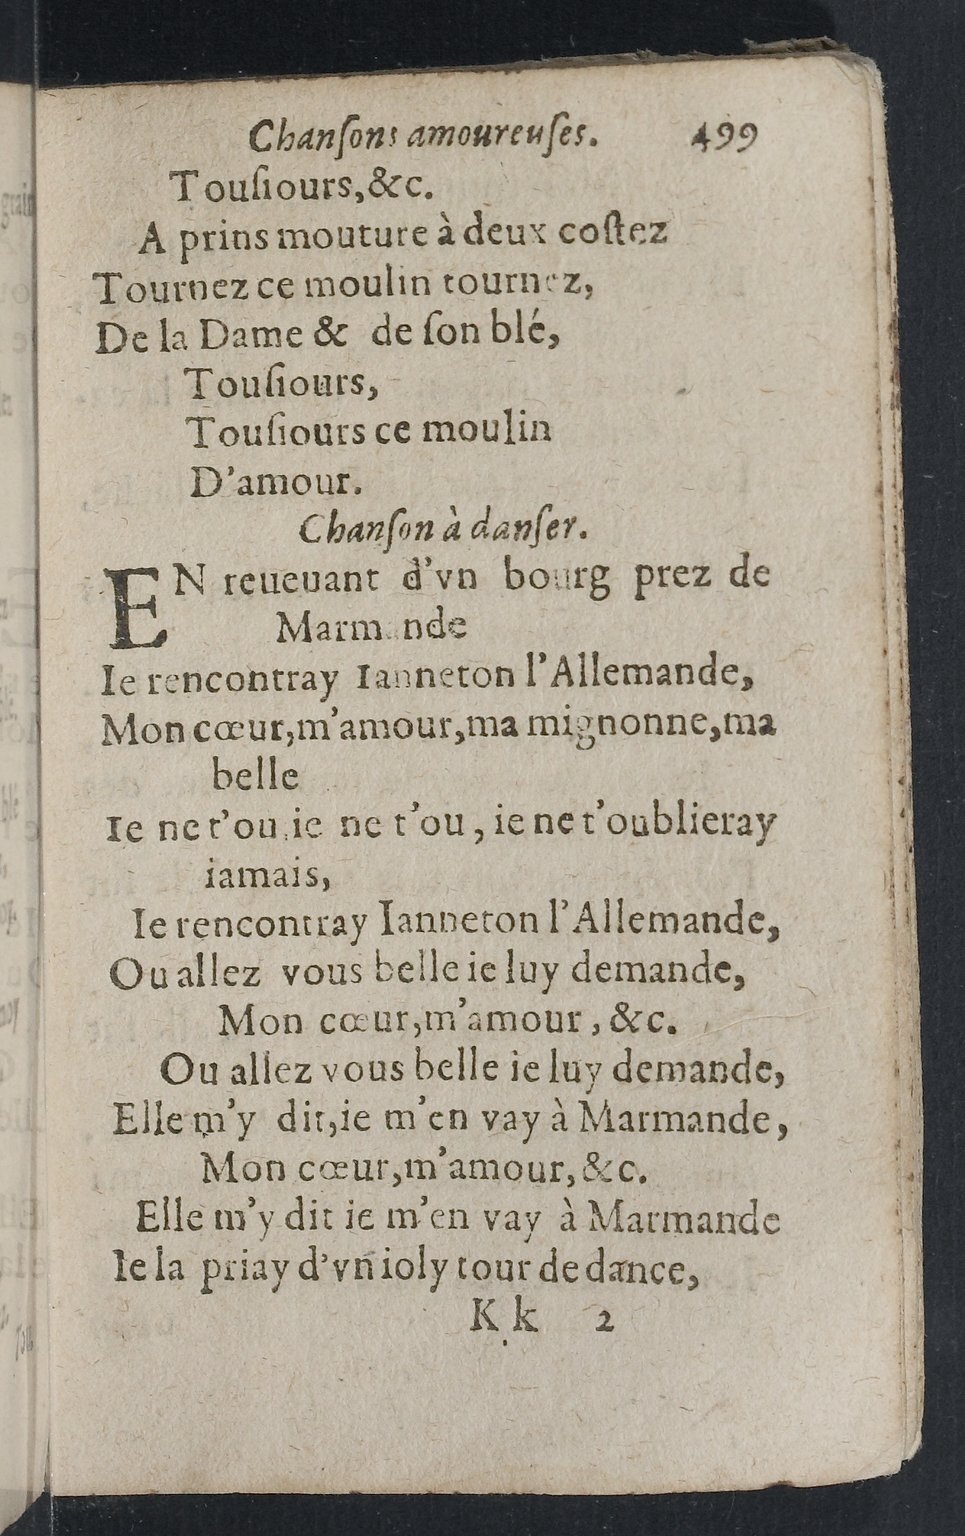 Chanſons amoureuſes. 499
Touſiours,&c.
A prins mouture à deux coſtez
Tournez ce moulin tournez,
De la Dame & de ſon blé,
Touſiours,
Touſiours ce moulin
D'amour.
Chanſon à danſer.
EN reueuant d'vn bourg prez de
Marmande
Ie rencontray Ianneton l'Allemande,
Mon cœur,m'amour,ma mignonne,ma
belle
Ie ne t'ou,ie ne t'ou, ie ne t'oublieray
iamais,
Ie rencontray Ianneton l'Allemande,
Ou allez vous belle ie luy demande,
Mon cœur,m'amour, &c.
Ou allez vous belle ie luy demande,
Elle m'y dit,ie m'en vay à Marmande,
Mon cœur,m'amour, &c.
Elle m'y dit ie m'en vay à Marmande
Ie la priay d'vn ioly tour de dance,
Kk 2